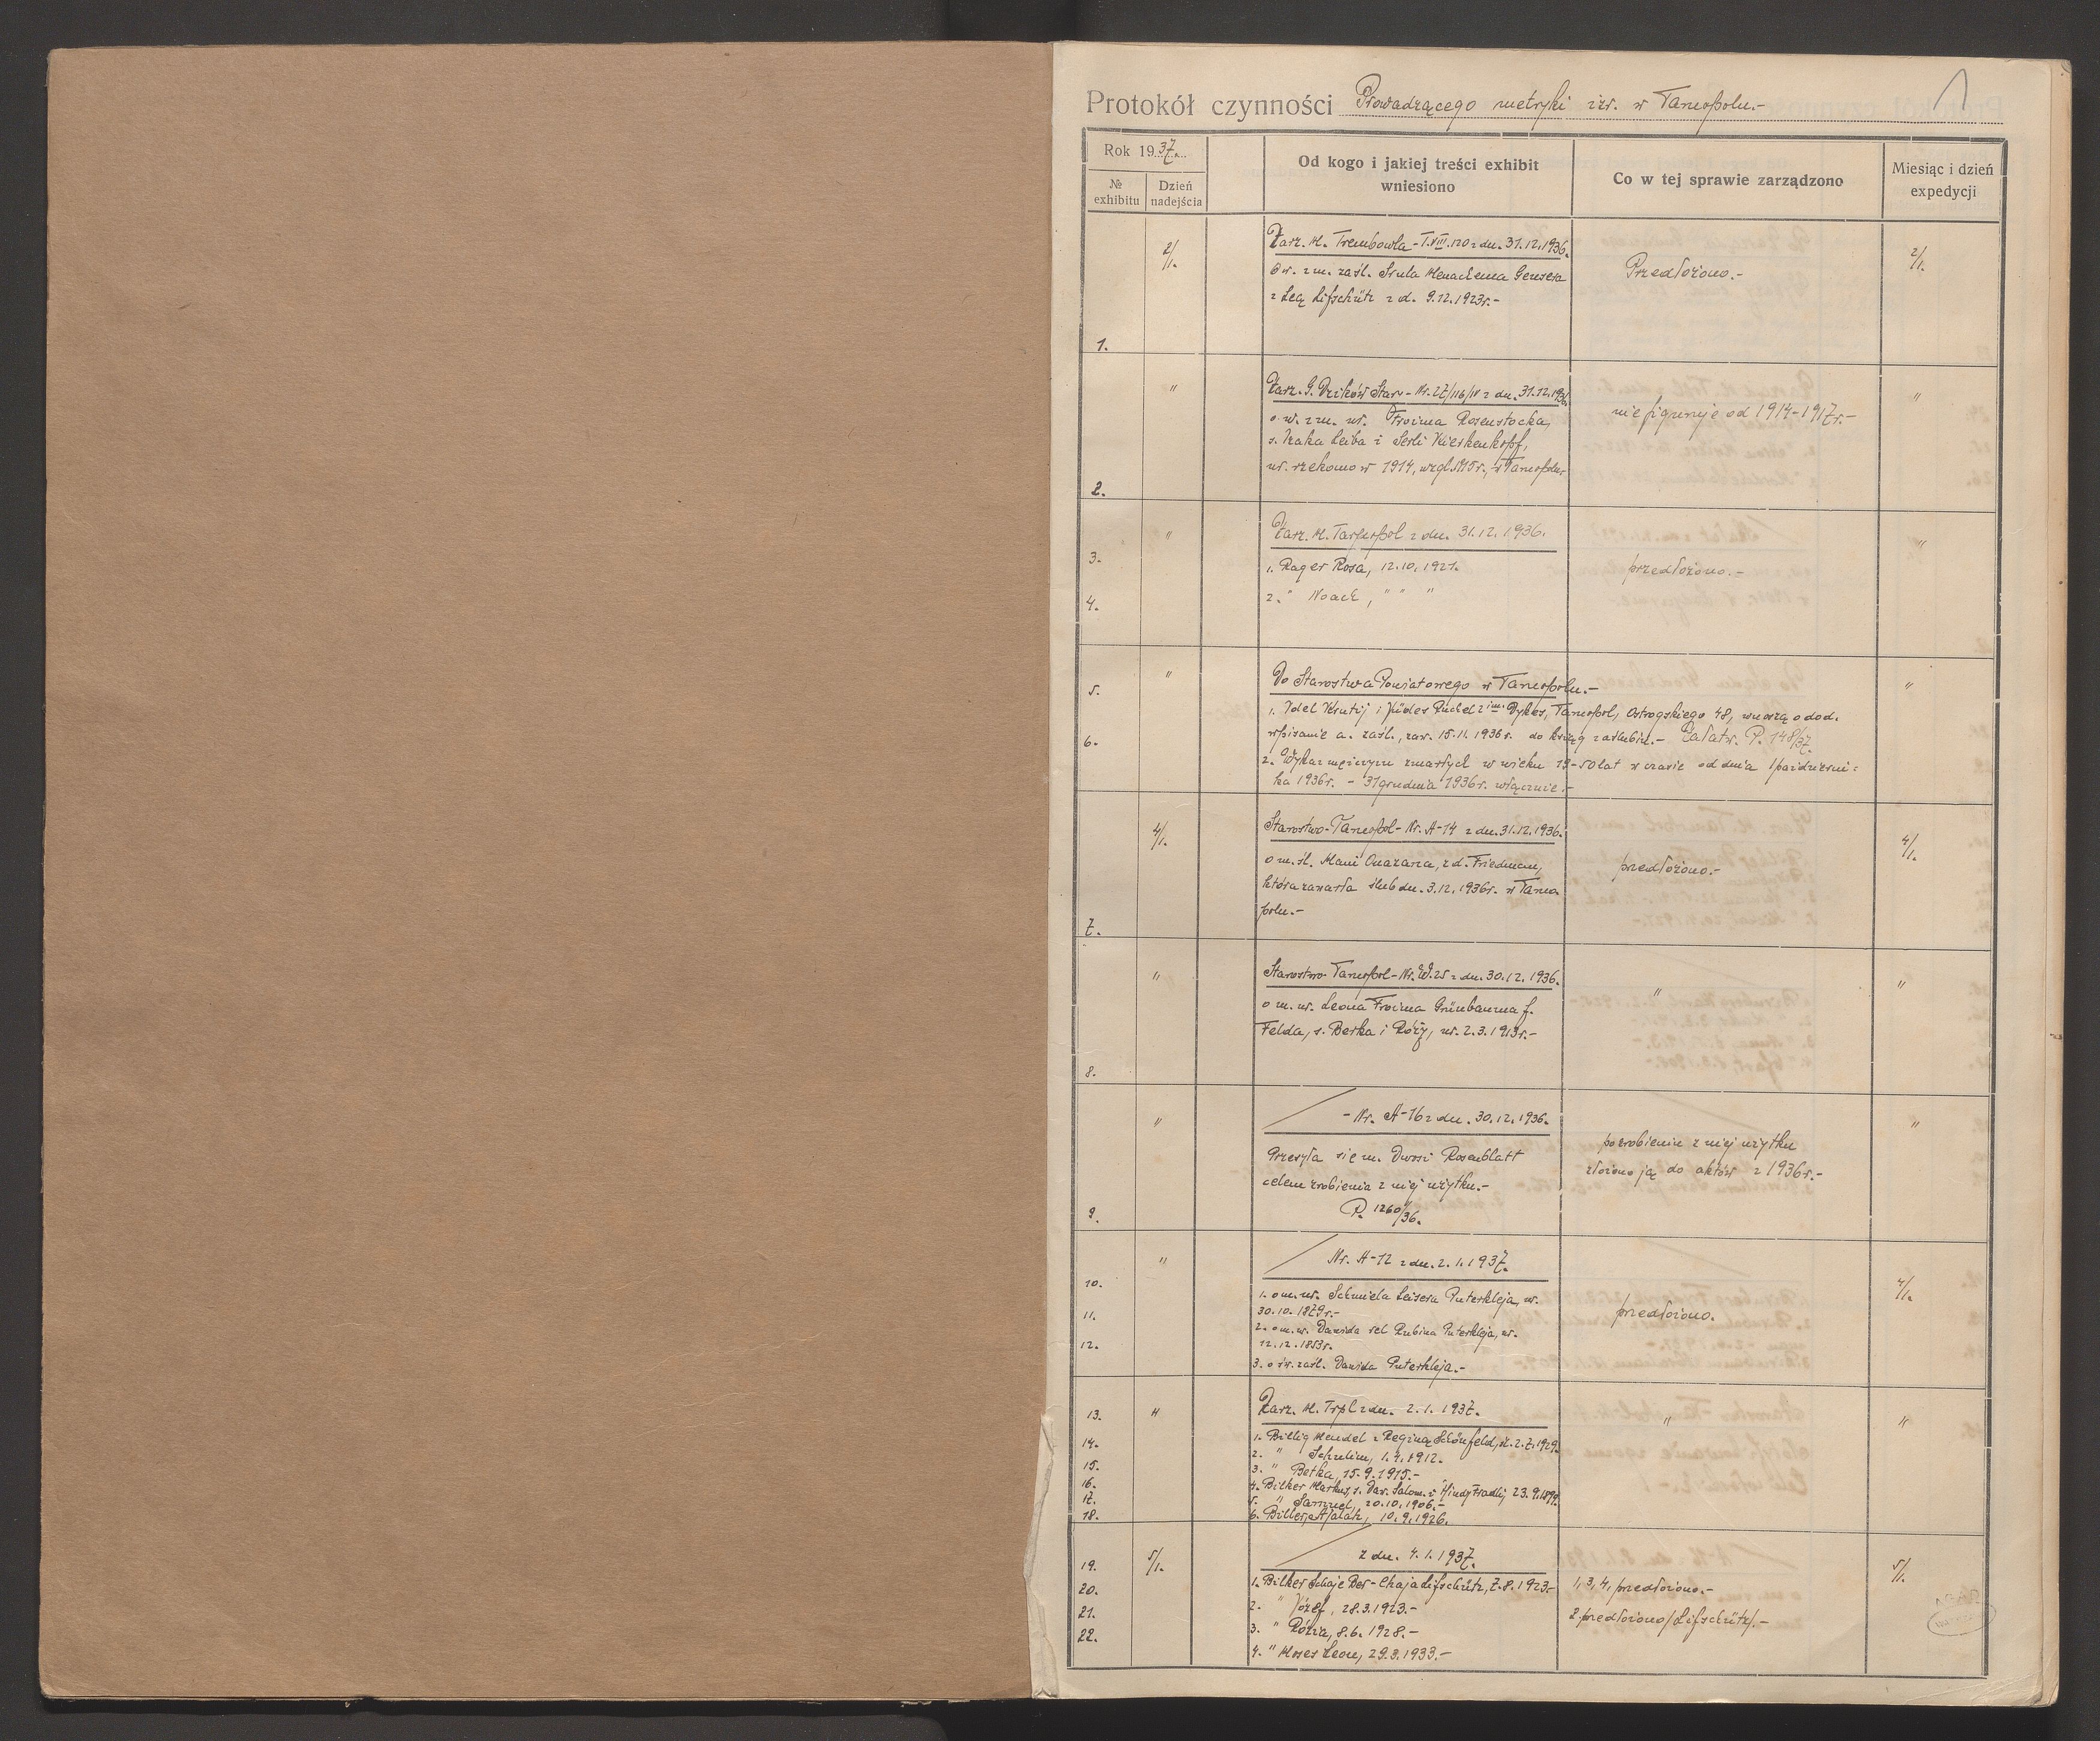 1
Protokół czynności Prowadzącego metryki izr. w Tarnopolu.-
Rok 1937.
№ exhibitu
Dzień nadejścia
Od kogo i jakiej treści exhibit wniesiono
Co w tej sprawie zarządzono
Miesiąc i dzień expedycji
1.
2/1.
Zarz. M. Trembowla - T.VIII.120 z dn. 31.12.1936.
o w. z m. zaśl. Srula Menachema Gensera
z Leą Lifschütz z d. 9.12.1923r.-
Przedłożono.-
2/1.
2.
"
Zarz. G. Dzików Star - Nr. 27/116/IV z dn. 31.12.1936.
o w. z m. ur. Froima Rosenstocka,
s. Izaka Leiba i Serli Kierkenkopf,
ur. rzekomo w 1914, wzgl. 1915r., w Tarnopolu.-
nie figuruje od 1914-1917r.-
"
3.
4.
"
Zarz. M. Tarnopol z dn. 31.12.1936.
1. Rager Rosa, 12.10.1921.
2. " Noach, " " "
przedłożono.-
"
5.
6.
"
Do Starostwa Powiatowego w Tarnopolu.-
1. Idel Krutij i Jüdes Ruchel 2 im. Dykes, Tarnopol, Ostrogskiego 48, wnoszą o dod.
wpisanie a. zaśl., zaw. 15.11.1936r. do ksiąg zaślubin.- Załatw. P. 148/37.
2. Wykaz mężczyzn zmarłych w wieku 18-50 lat w czasie od dnia 1 październi-
ka 1936r. - 31 grudnia 1936r. włącznie.-
"
7.
4/1.
Starostwo-Tarnopol- Nr. A-14 z dn. 31.12.1936.
o m. śl. Mani Quazana, z d. Friedman,
która zawarła ślub dn. 3.12.1936r. w Tarno-
polu.-
przedłożono.-
4/1.
8.
"
Starostwo-Tarnopol- Nr. W.25 z dn. 30.12.1936.
o m. ur. Leona Froima Grünbauma f.
Felda, s. Berka i Róży, ur. 2.3.1913r.-
"
"
9.
"
- Nr. A-16 z dn. 30.12.1936.
Przesyła się m. Dwosi Rosenblatt
celem zrobienia z niej użytku.-
P. 1260/36.
po zrobieniu z niej użytku
złożono ją do aktów z 1936r.-
"
10.
11.
12.
"
Nr. A-12 z dn. 2.1.1937.
1. o m. ur. Schmiela Leisera Puterkleja, ur.
30.10.1879r.-
2. o m. w. Dawida rel Rubina Puterkleja, ur.
12.12.1853r.
3. o św. zaśl. Dawida Puterkleja.-
przedłożono.
4/1.
13.
14.
15.
16.
17.
18.
"
Zarz. M. Trpl z dn. 2.1.1937.
1. Billig Mendel z Reginą Schönfeld, śl. 2.7.1929.
2. " Schulim, 1.4.1912.
3. " Betka, 15.9.1915.-
4. Bilker Markus, s. Daw. Salom. i Hindy Fradli, 23.9.1899.
5. " Samuel, 20.10.1906.-
6. Biller, 10.9.1926.
"
"
19.
20.
21.
22.
5/1.
z dn. 4.1.1937.
1. Bilker Schaje Ber - Chaja Lifschütz, 7.8.1923.-
2. " Józef, 28.3.1923.-
3. " Rózia, 8.6.1928.-
4. " Moses Leon, 29.3.1933.-
1, 3, 4, przedłożono.-
2. przedłożono /Lifschütz/.-
5/1.